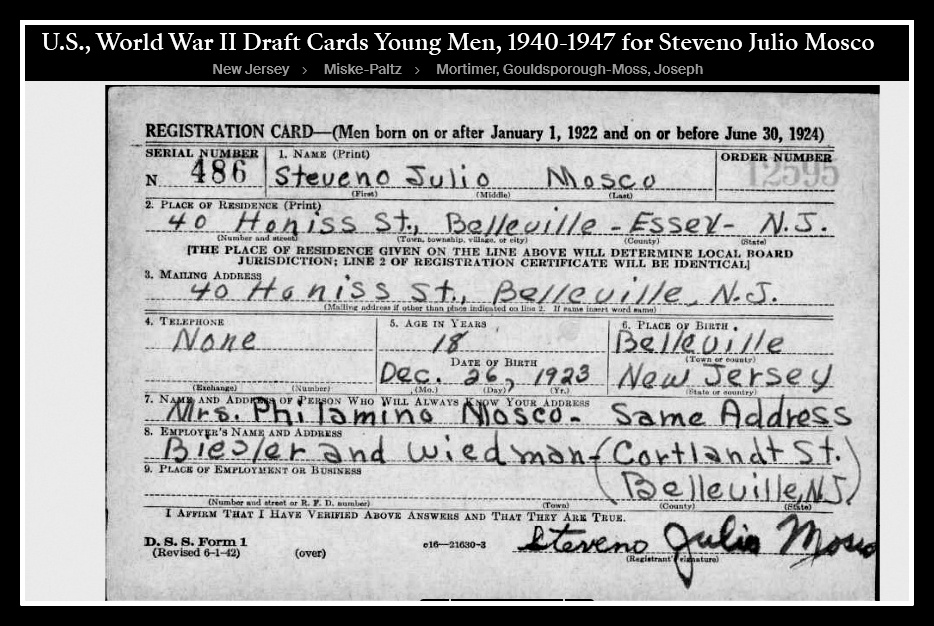 U.S., World War II Draft Cards Young Men, 1940-1947 for Steveno Julio Mosco
New Jersey > Miske-Paltz > Mortimer, Gouldsporough-Moss, Joseph
REGISTRATION CARD—(Men born on or after January 1, 1922 and on or before June 30, 1924)
SERIAL NUMBER 1. NAME (Print) ORDER NUMBER
N 486 Steveno Julio Mosco 12595
(First) (Middle) (Last)
2. PLACE OF RESIDENCE (Print)
40 Honiss St., Belleville - Essex - N.J.
(Number and street) (Town, township, village, or city) (County) (State)
[THE PLACE OF RESIDENCE GIVEN ON THE LINE ABOVE WILL DETERMINE LOCAL BOARD
JURISDICTION; LINE 2 OF REGISTRATION CERTIFICATE WILL BE IDENTICAL]
3. MAILING ADDRESS
40 Honiss St., Belleville, N.J.
(Mailing address if other than place indicated on line 2. If same insert word same)
4. TELEPHONE 5. AGE IN YEARS 6. PLACE OF BIRTH
None 18 Belleville
DATE OF BIRTH (Town or county)
Dec. 26, 1923 New Jersey
(Exchange) (Number) (Mo.) (Day) (Yr.) (State or country)
7. NAME AND ADDRESS OF PERSON WHO WILL ALWAYS KNOW YOUR ADDRESS
Mrs. Philamino Mosco - Same Address
8. EMPLOYER'S NAME AND ADDRESS
Biesler and Wiedman - (Cortlandt St.
9. PLACE OF EMPLOYMENT OR BUSINESS
Belleville, N.J.)
(Number and street or R. F. D. number) (Town) (County) (State)
I AFFIRM THAT I HAVE VERIFIED ABOVE ANSWERS AND THAT THEY ARE TRUE.
D. S. S. Form 1
(Revised 6-1-42) (over) c16—21630-3 Steveno Julio Mosco
(Registrant's signature)